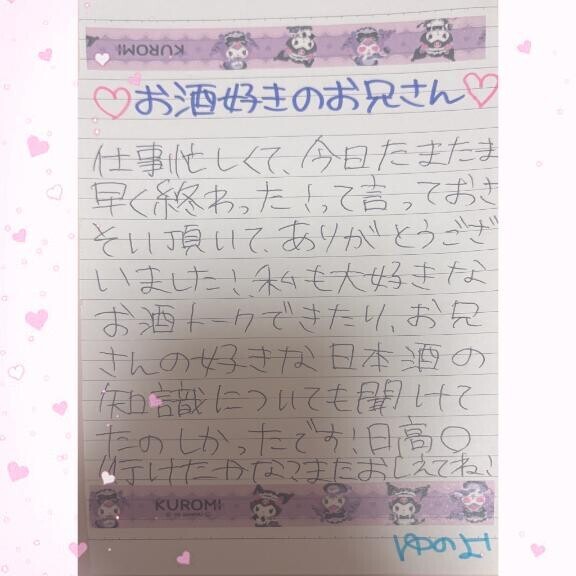 KUROMI
お酒好きのお兄さん
仕事忙しくて、今日たまたま
早く終わった!って言っておさ
そい頂いて、ありがとうござ
いました!、私も大好きな
お酒トークできたり、お兄
さんの好きな日本酒の
知識についても聞けて
たのしかったです!日高〇
行けたかな?またおしえてね!
KUROMI
ゆのより